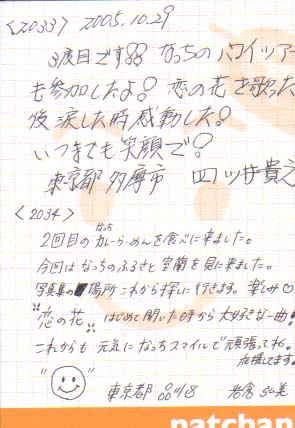 <2033> 2005.10.29
3度目です!! なっちのハワイツアー
も参加したよ! 恋の花を歌った
後涙した時感動した!
いつまでも笑顔で!
東京都 多摩市 四ツ井貴之
<2034>
2回目の なっち カレーらーめんを食べに来ました。
今回は なっちのふるさと室蘭を見に来ました。
写真集の 場所 これから探しに行きます。楽しみ♡
"恋の花" はじめて聞いた時から大好きな一曲!
これからも 元気に なっちスマイルで頑張ってね。
応援してます。
東京都 品川区 岩倉
patchan